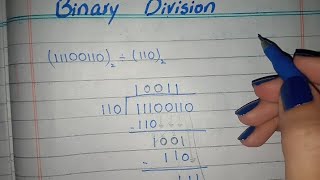 Binary Division
(11100110)₂ ÷ (110)₂
10011
110 11100110
-110
1001
- 110
111